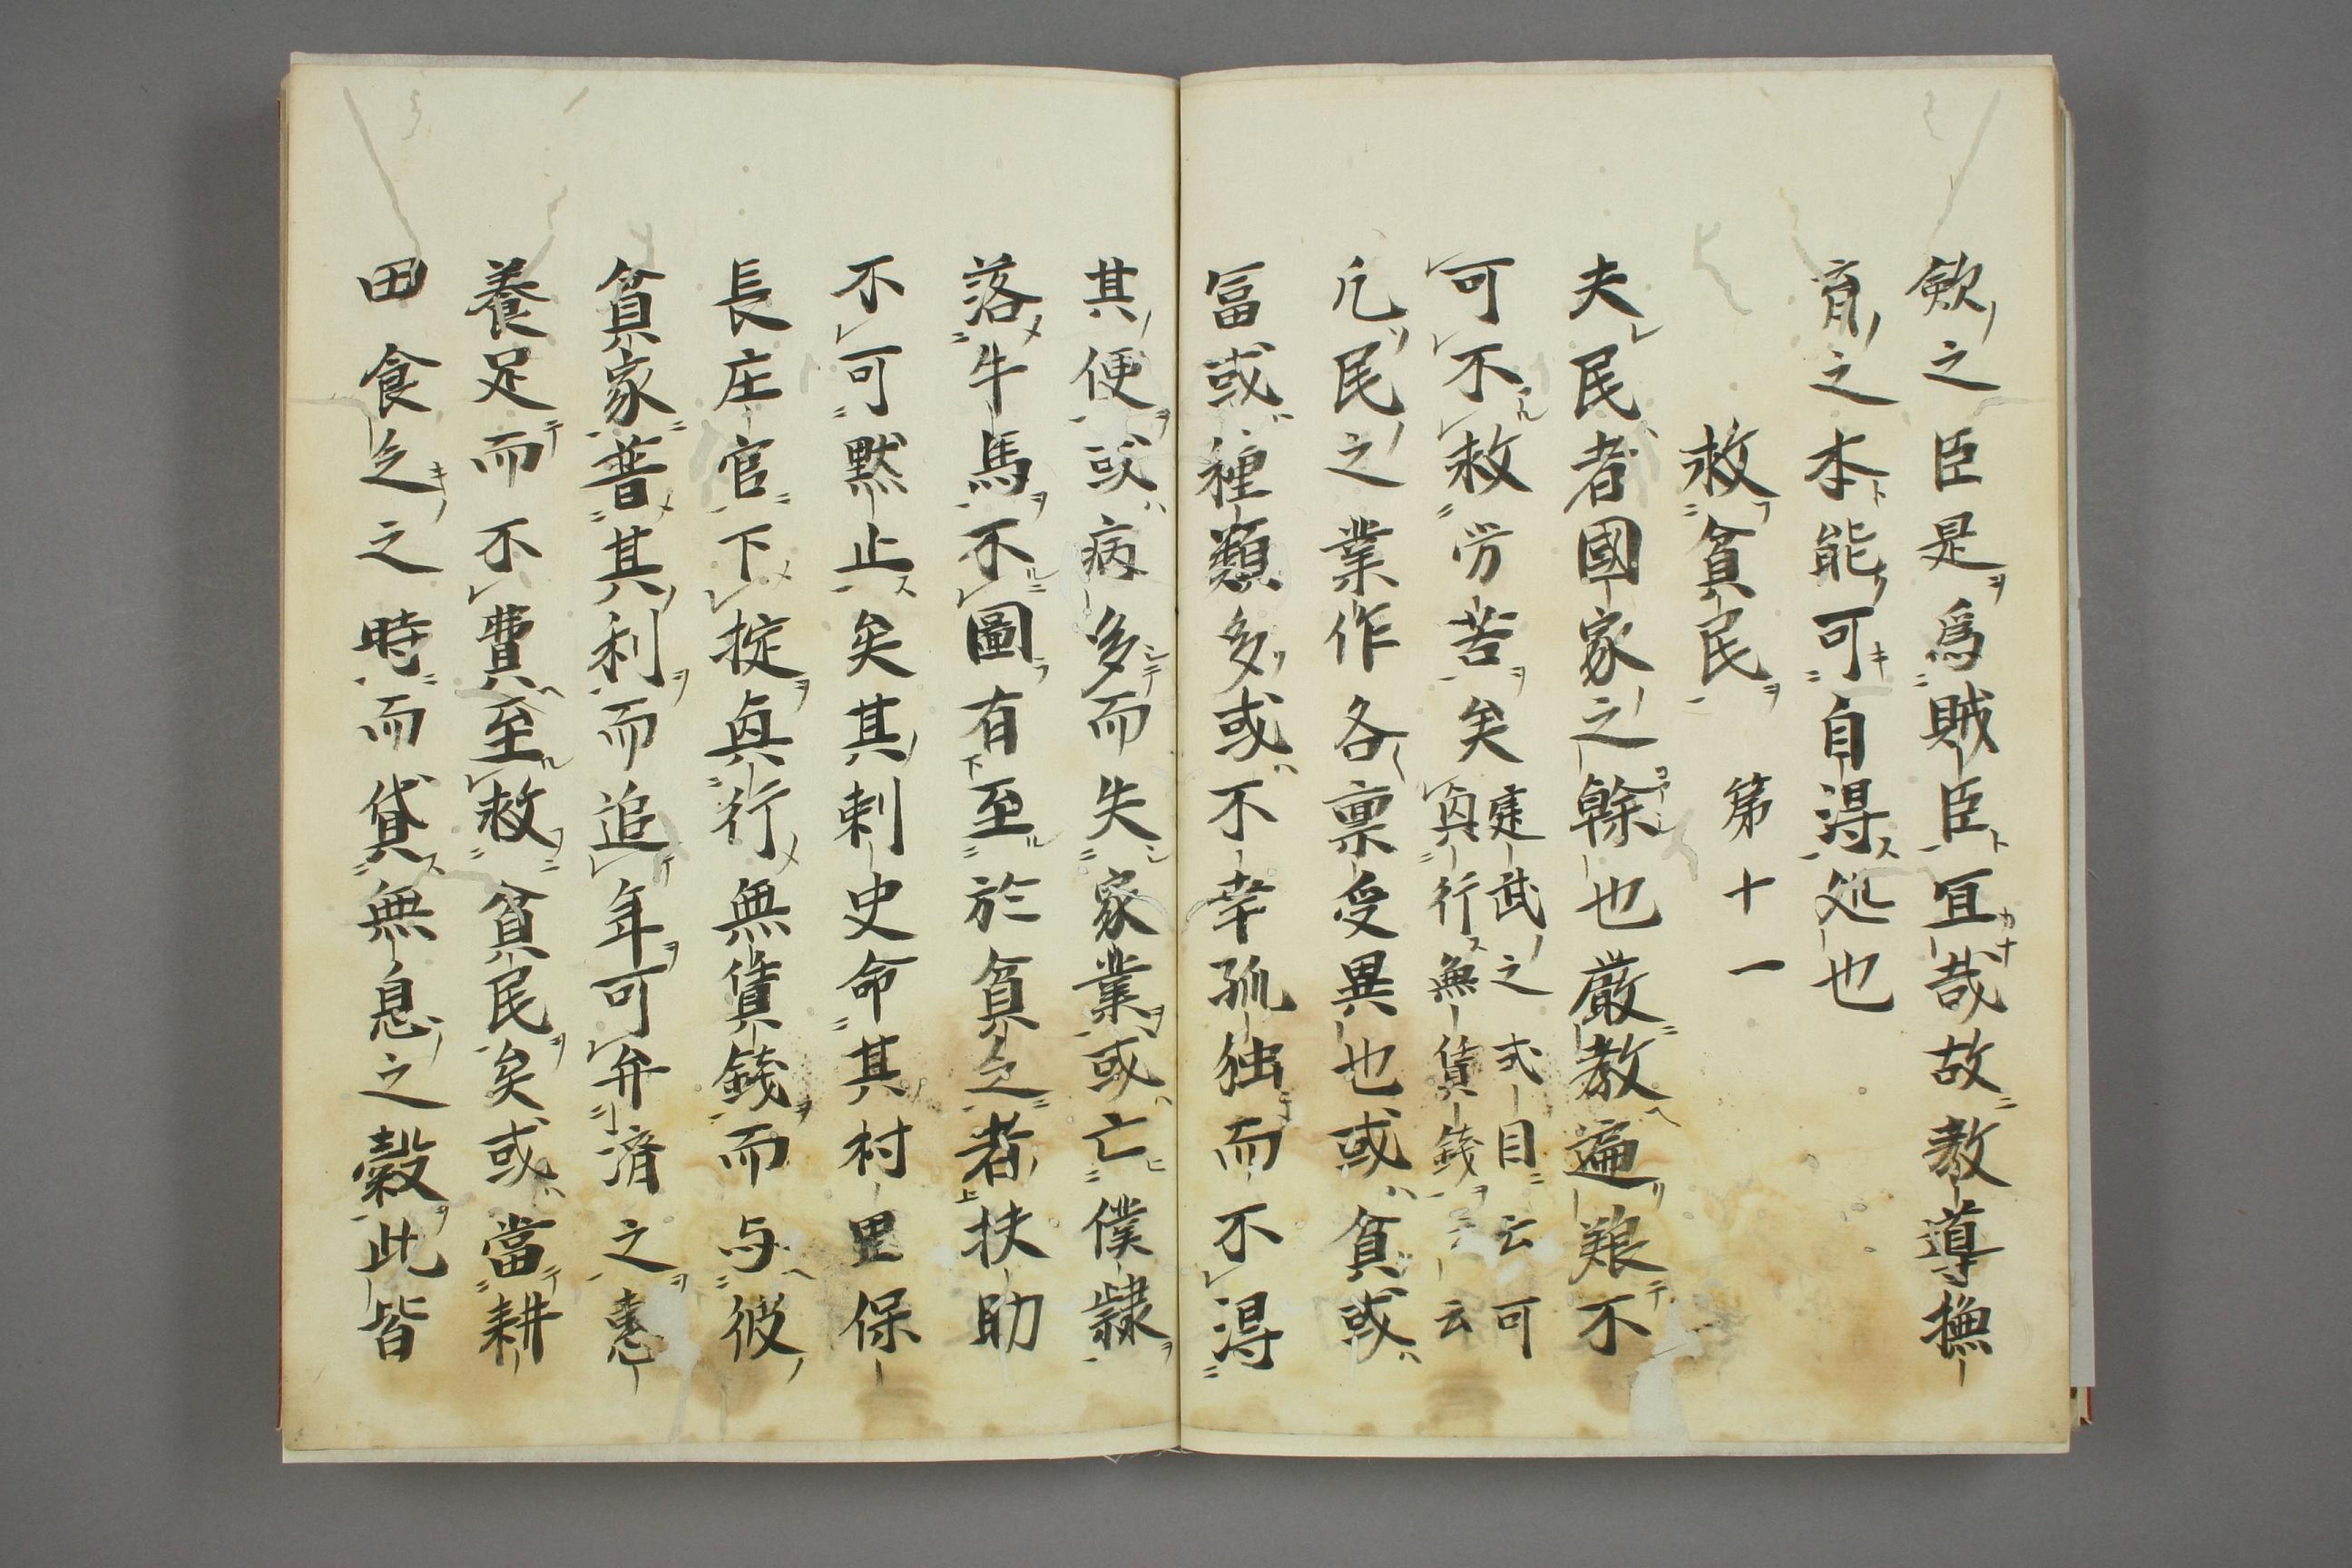 斂之臣是為賊臣宜哉故教導撫
育之本能可自得処也
救貧民　第十一
夫民者國家之幹也厳教遍艱不
可不救労苦矣
建武之式目云可
興行無賃錢云云
凡民之業作各禀受異也或貧或
冨或種類多或不幸孤独而不得
其便或病多而失家業或亡僕隷
落牛馬不圖有至於貧乏者扶助
不可黙止矣其刺史命其村里保
長庄官下掟興行無賃錢而与彼
貧家普其利而追年可弁済之
養足而不費至救貧民矣或當耕
田食乏之時而貸無息之穀此皆